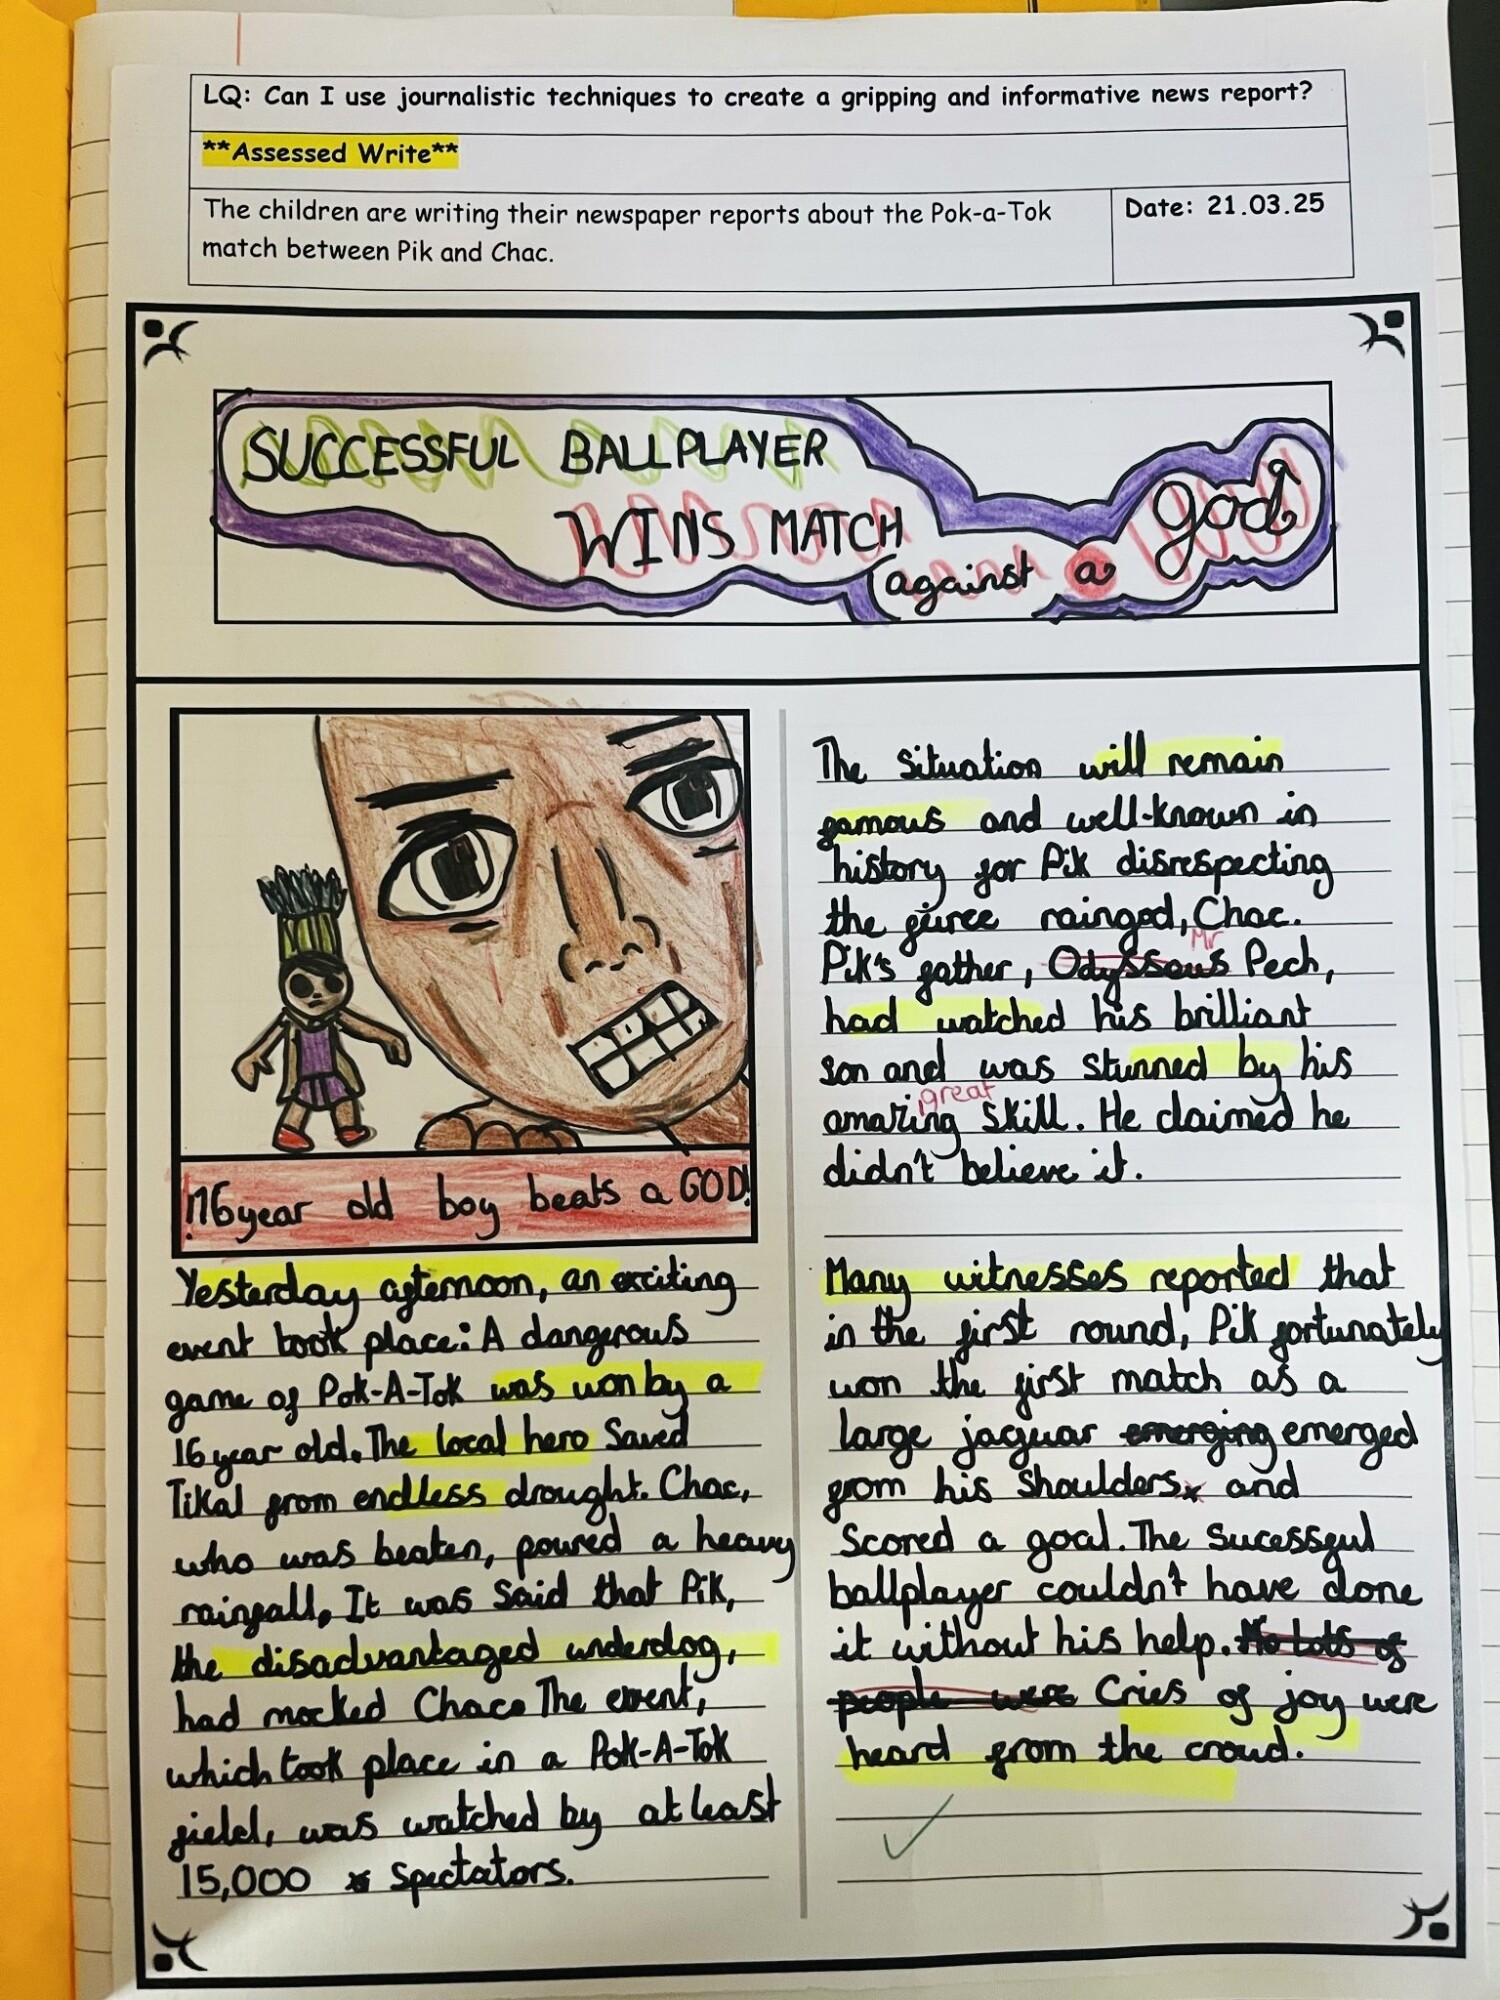 LQ: Can I use journalistic techniques to create a gripping and informative news report?
**Assessed Write**
The children are writing their newspaper reports about the Pok-a-Tok
match between Pik and Chac.
Date: 21.03.25
SUCCESSFUL BALLPLAYER
WINS MATCH
against a god
16 year old boy beats a GOD!
Yesterday afternoon, an exciting
event took place: A dangerous
game of Pok-A-Tok was won by a
16 year old. The local hero Saved
Tikal from endless drought. Chac,
who was beaten, poured a heavy
rainfall. It was said that Pik,
the disadvantaged underdog,
had mocked Chac. The event,
which took place in a Pok-A-Tok
field, was watched by at least
15,000 spectators.
The situation will remain
famous and well-known in
history for Pik disrespecting
the fierce raingod, Chac.
Mr
Pik's father, Odysseus Pech,
had watched his brilliant
son and was stunned by his
great
amazing skill. He claimed he
didn't believe it.
Many witnesses reported that
in the first round, Pik fortunately
won the first match as a
large jaguar emerging emerged
from his shoulders and
Scored a goal. The sucessful
ballplayer couldn't have done
it without his help. No lots of
people were Cries of joy were
heard from the croud.